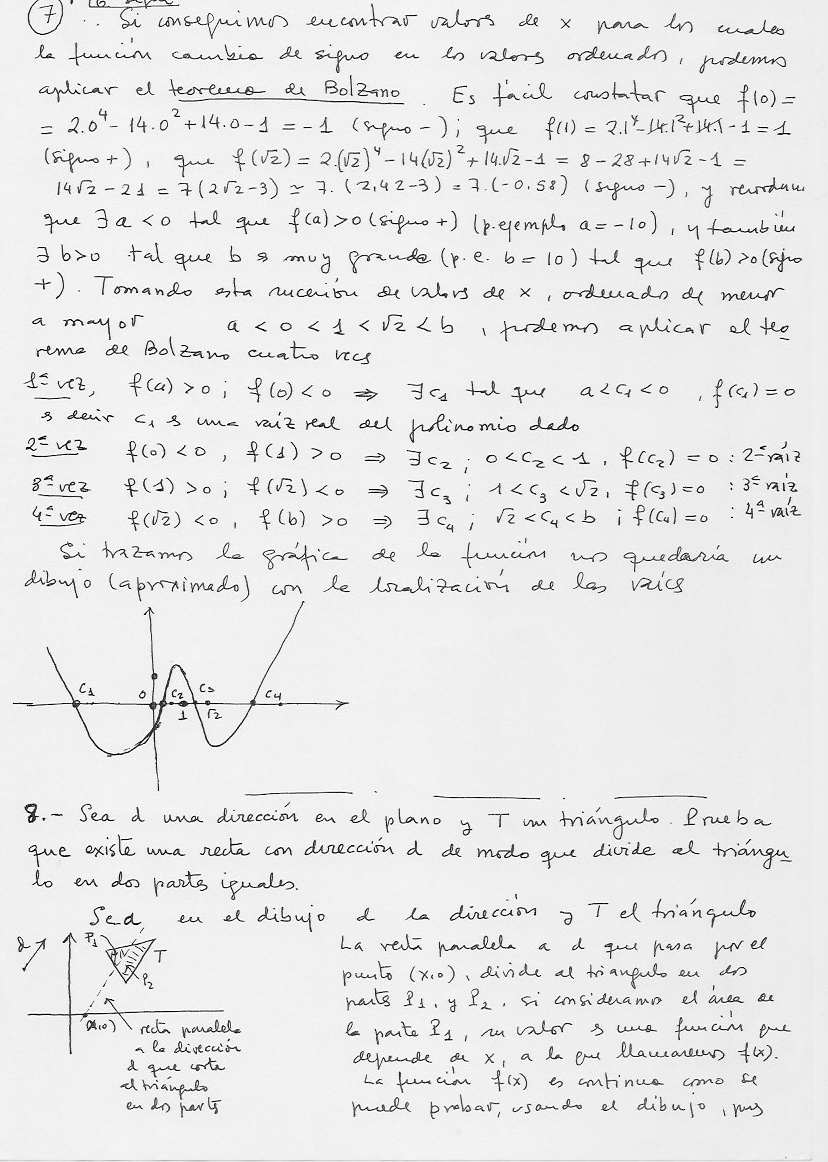 (7) ∴ Si conseguimos encontrar valores de x para los cuales
la función cambia de signo en los valores ordenados, podemos
aplicar el teorema de Bolzano. Es fácil constatar que f(0) =
= 2.0⁴ - 14.0² + 14.0 - 1 = -1 (signo -); que f(1) = 2.1⁴ - 14.1² + 14.1 - 1 = 1
(signo +), que f(√2) = 2.(√2)⁴ - 14(√2)² + 14.√2 - 1 = 8 - 28 + 14√2 - 1 =
14√2 - 21 = 7(2√2 - 3) ≃ 7.(2,42 - 3) = 7.(-0,58) (signo -), y recordamos
que ∃ a < 0 tal que f(a) > 0 (signo +) (p. ejemplo a = -10), y también
∃ b > 0 tal que b es muy grande (p. e. b = 10) tal que f(b) > 0 (signo
+). Tomando esta sucesión de valores de x, ordenado de menor
a mayor a < 0 < 1 < √2 < b, podemos aplicar el teo
rema de Bolzano cuatro veces
1ª vez, f(a) > 0; f(0) < 0 ⇒ ∃ c₁ tal que a < c₁ < 0, f(c₁) = 0
es decir c₁ es una raíz real del polinomio dado
2ª vez f(0) < 0, f(1) > 0 ⇒ ∃ c₂; 0 < c₂ < 1, f(c₂) = 0 : 2ª raíz
3ª vez f(1) > 0; f(√2) < 0 ⇒ ∃ c₃; 1 < c₃ < √2, f(c₃) = 0 : 3ª raíz
4ª vez f(√2) < 0, f(b) > 0 ⇒ ∃ c₄; √2 < c₄ < b; f(c₄) = 0 : 4ª raíz
Si trazamos la gráfica de la función nos quedaría un
dibujo (aproximado) con la localización de las raíces
c₁ 0 c₂ c₃ c₄
1 √2
8.- Sea d una dirección en el plano y T un triángulo. Prueba
que existe una recta con dirección d de modo que divide al triángu
lo en dos partes iguales.
Sea, en el dibujo d la dirección y T el triángulo
d P₁ T
P₂
(x,0)
recta paralela
a la dirección
d que corta
al triángulo
en dos partes
La recta paralela a d que pasa por el
punto (x,0), divide al triangulo en dos
partes P₁, y P₂, si consideramos el área de
la parte P₁, su valor es una función que
depende de x, a la que llamaremos f(x).
La función f(x) es continua como se
puede probar, usando el dibujo, pues